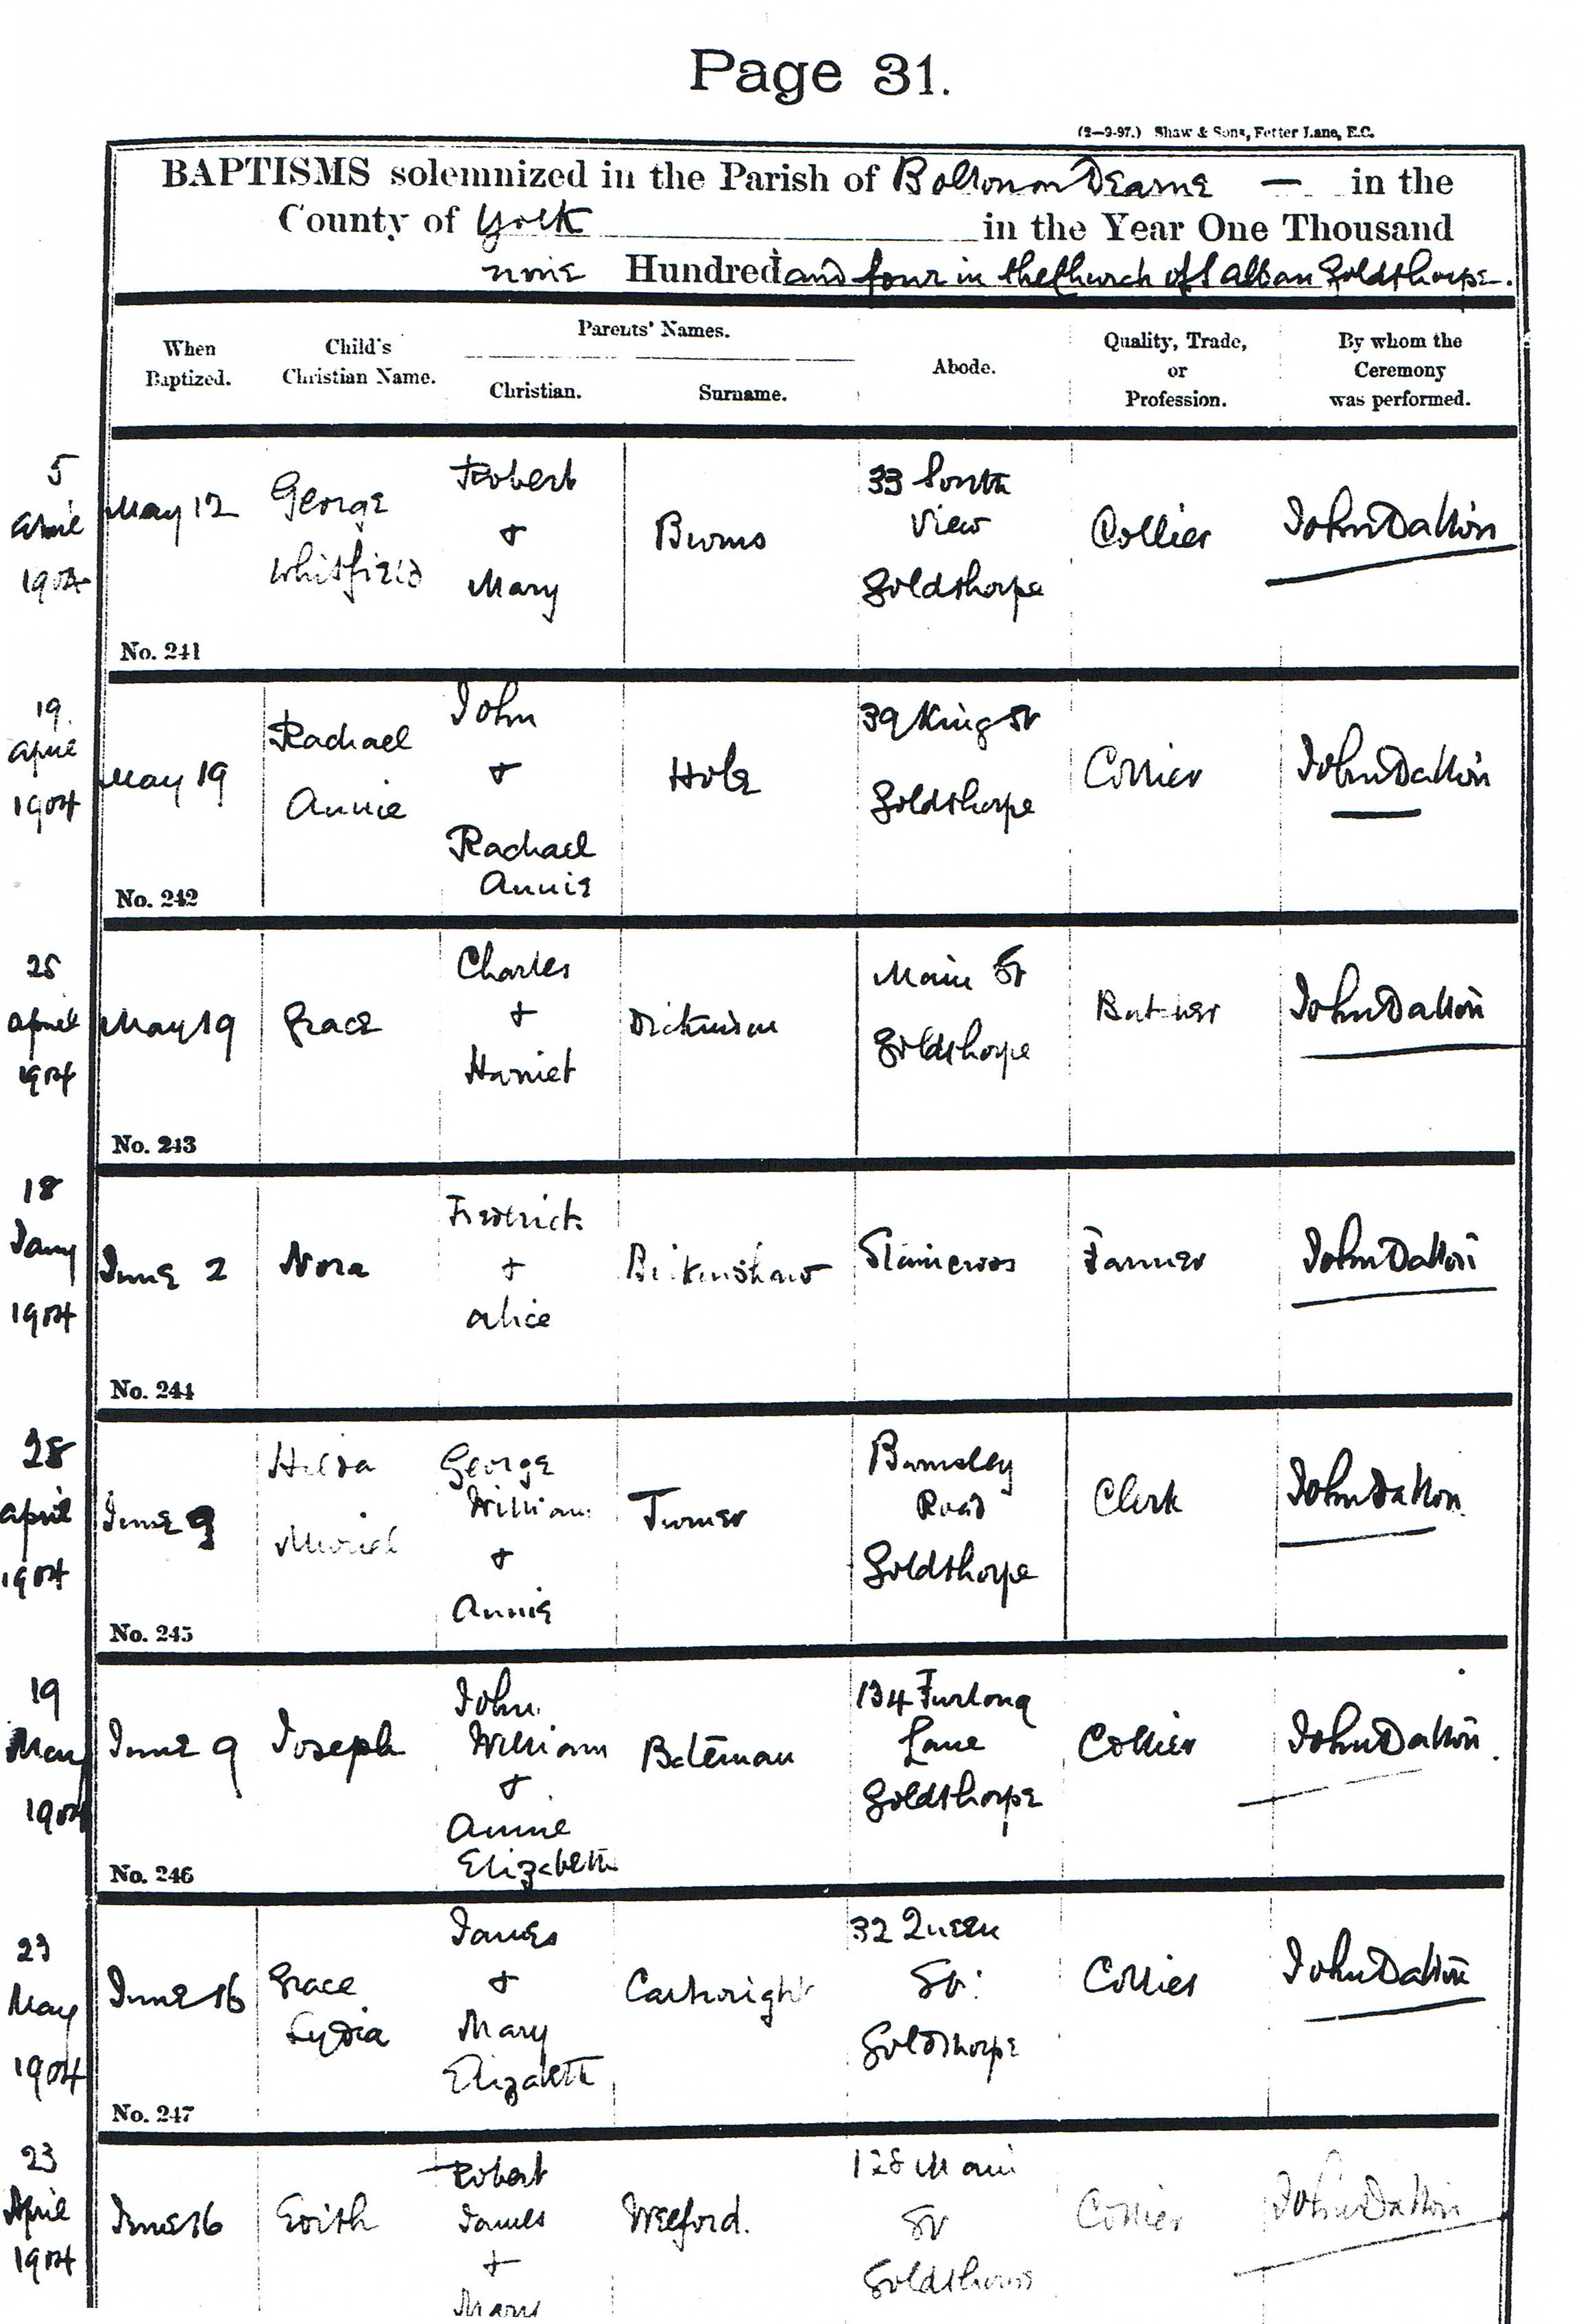 Page 31.
(2—9-97.) Shaw & Sons, Fetter Lane, E.C.
BAPTISMS solemnized in the Parish of Bolton on Dearne — in the
County of York in the Year One Thousand
nine Hundred and four in the Church of S Alban Goldthorpe.
When Baptized.
Child's Christian Name.
Parents' Names.
Christian.
Surname.
Abode.
Quality, Trade, or Profession.
By whom the Ceremony was performed.
5 April 1904
May 12
George Whitfield
Robert & Mary
Burns
33 South View Goldthorpe
Collier
John Dalton
No. 241
19 April 1904
May 19
Rachael Annie
John & Rachael Annie
Hole
39 King St Goldthorpe
Collier
John Dalton
No. 242
25 April 1904
May 19
Grace
Charles & Harriet
Dickinson
Main St Goldthorpe
John Dalton
No. 243
18 Jany 1904
June 2
Nora
Frederick & Alice
Birkinshaw
Staincross
Farmer
John Dalton
No. 244
28 April 1904
June 9
Hilda Muriel
George William & Annie
Turner
Barnsley Road Goldthorpe
Clerk
John Dalton
No. 245
19 May 1904
June 9
Joseph
John William & Annie Elizabeth
Bateman
134 Furlong Lane Goldthorpe
Collier
John Dalton
No. 246
23 May 1904
June 16
Grace Lydia
James & Mary Elizabeth
Cartwright
32 Queen St. Goldthorpe
Collier
John Dalton
No. 247
23 April 1904
June 16
Edith
Robert James & Mary
Welford.
128 Main St Goldthorpe
Collier
John Dalton